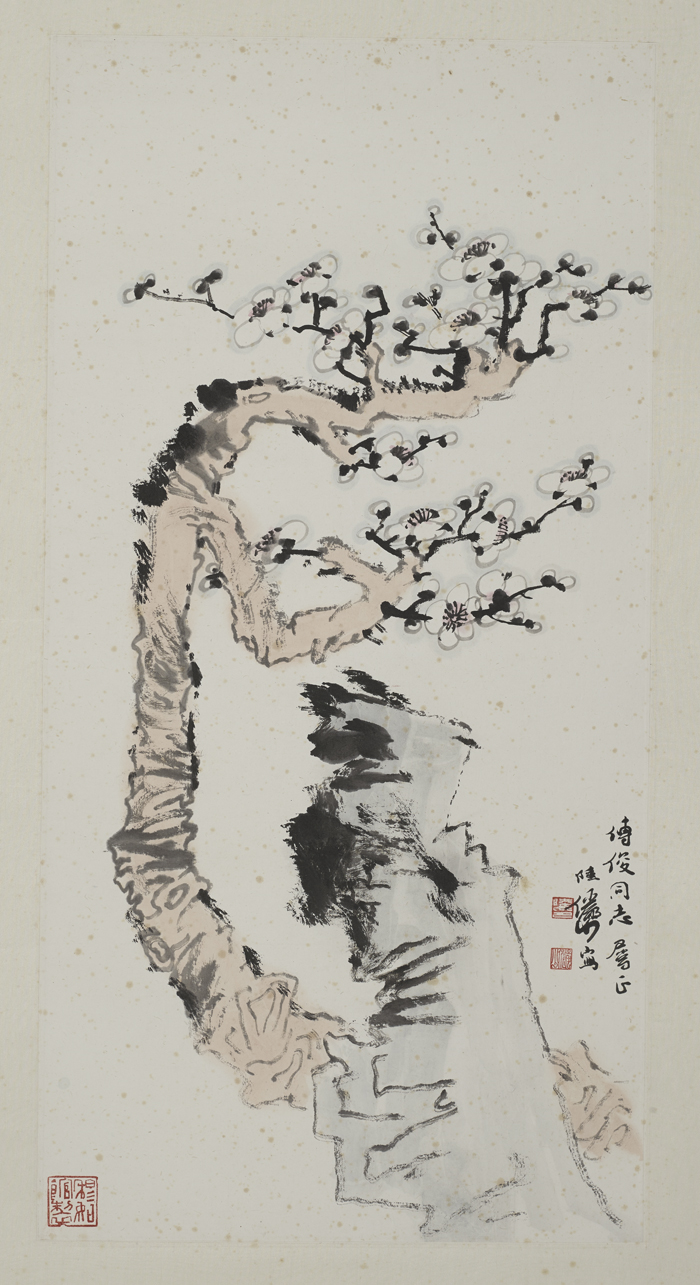 傅俊同志属正
陸儼少寫